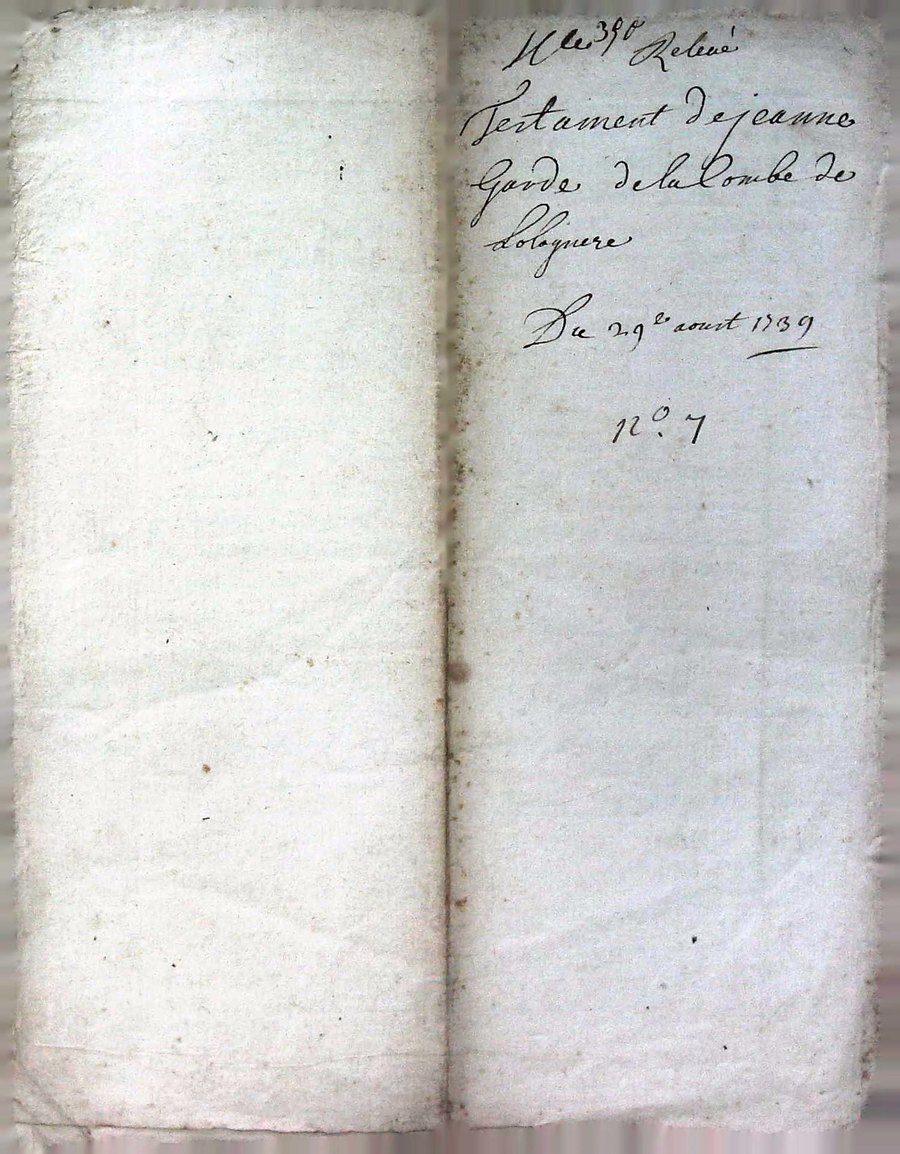 Relevé
Testament de jeanne
Garde de la Combe de
Du 29e aoust 1739
N°. 7